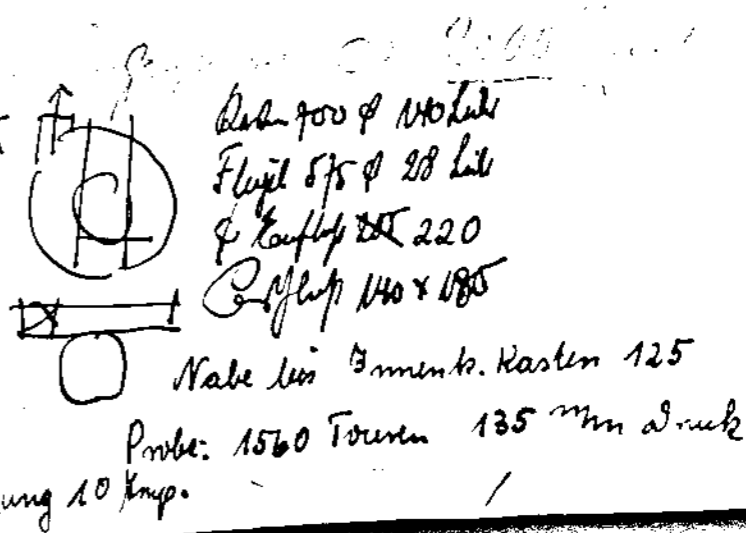 Kasten 700 φ 140 breit
Flügel 575 φ 28 breit
φ Einfluß 220
Ausfluß 140 x 185
Nabe bis Innenk. Kasten 125
Probe: 1560 Touren 135 mm Druck
ung 10 Amp.